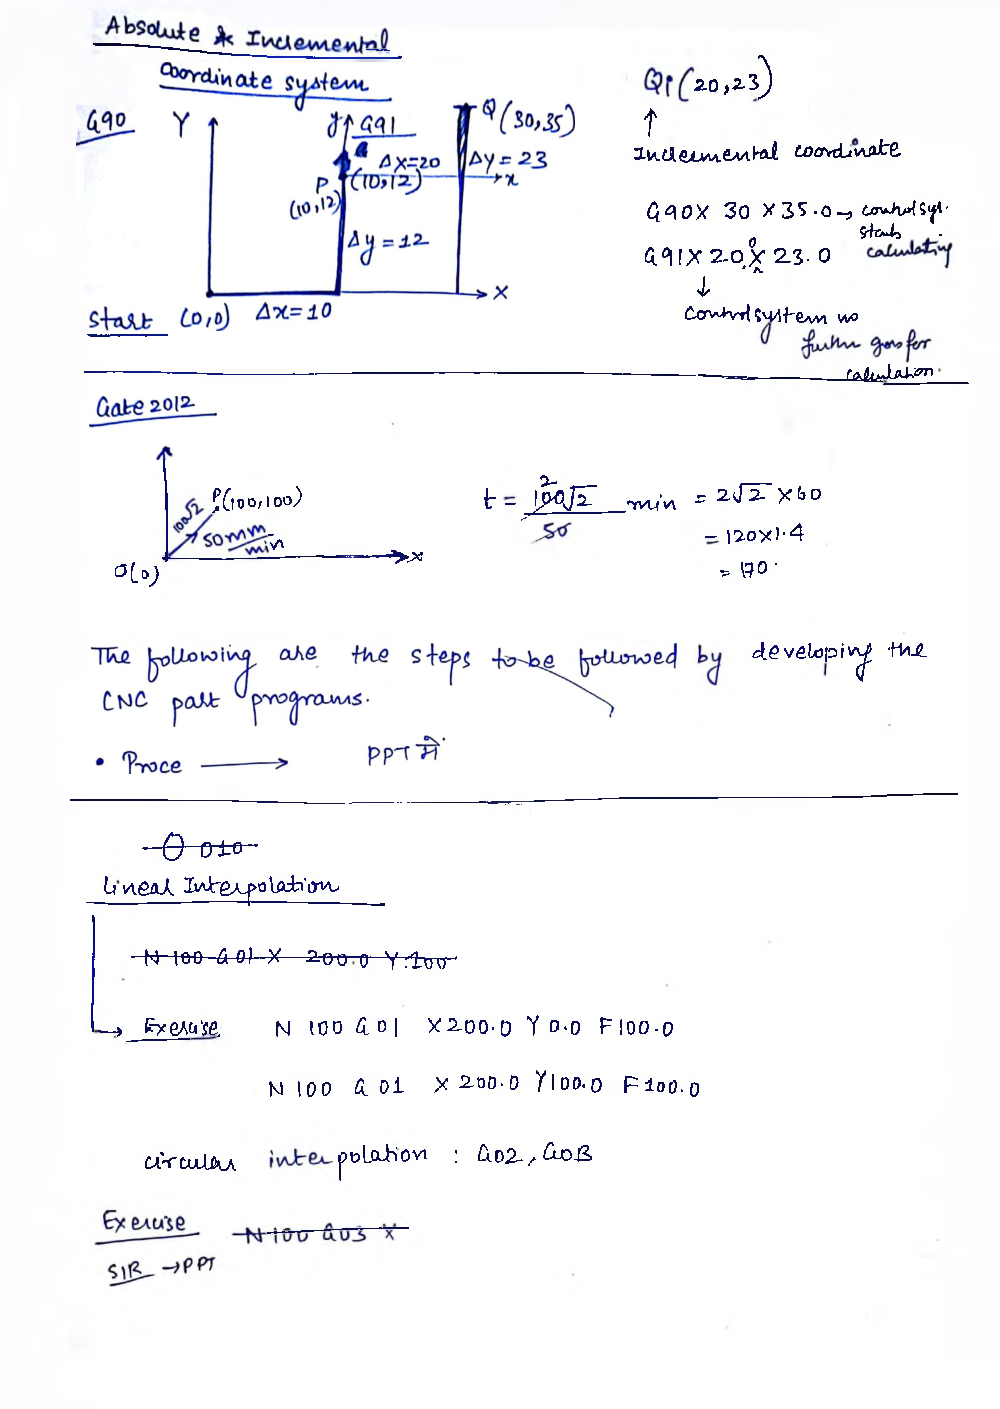 Absolute & Incremental
Coordinate system
G90
Y
y G91
Q (30,35)
Δx=20
Δy = 23
P
(10,12)
(10,12)
x
Δy = 12
X
Start (0,0) Δx=10
QP (20,23)
↑
Incremental coordinate
G90X 30 X35.0 → control syt.
starts
calculating
G91X 20.0 X 23.0
↓
Control system no
further goes for
calculation.
Gate 2012
P(100,100)
100√2
50 mm/min
O(0)
x
t = 100√2/50 min = 2√2 × 60
2
= 120×1.4
= 170.
The following are the steps to be followed by developing the
CNC part programs.
• Proce → PPT में
O 010
Linear Interpolation
N 100 G 01 X 200.0 Y.100
Exercise N 100 G 01 X200.0 Y 0.0 F100.0
N 100 G 01 X 200.0 Y100.0 F100.0
circular interpolation : G02, G03
Exercise N100 G03 X
SIR → PPT